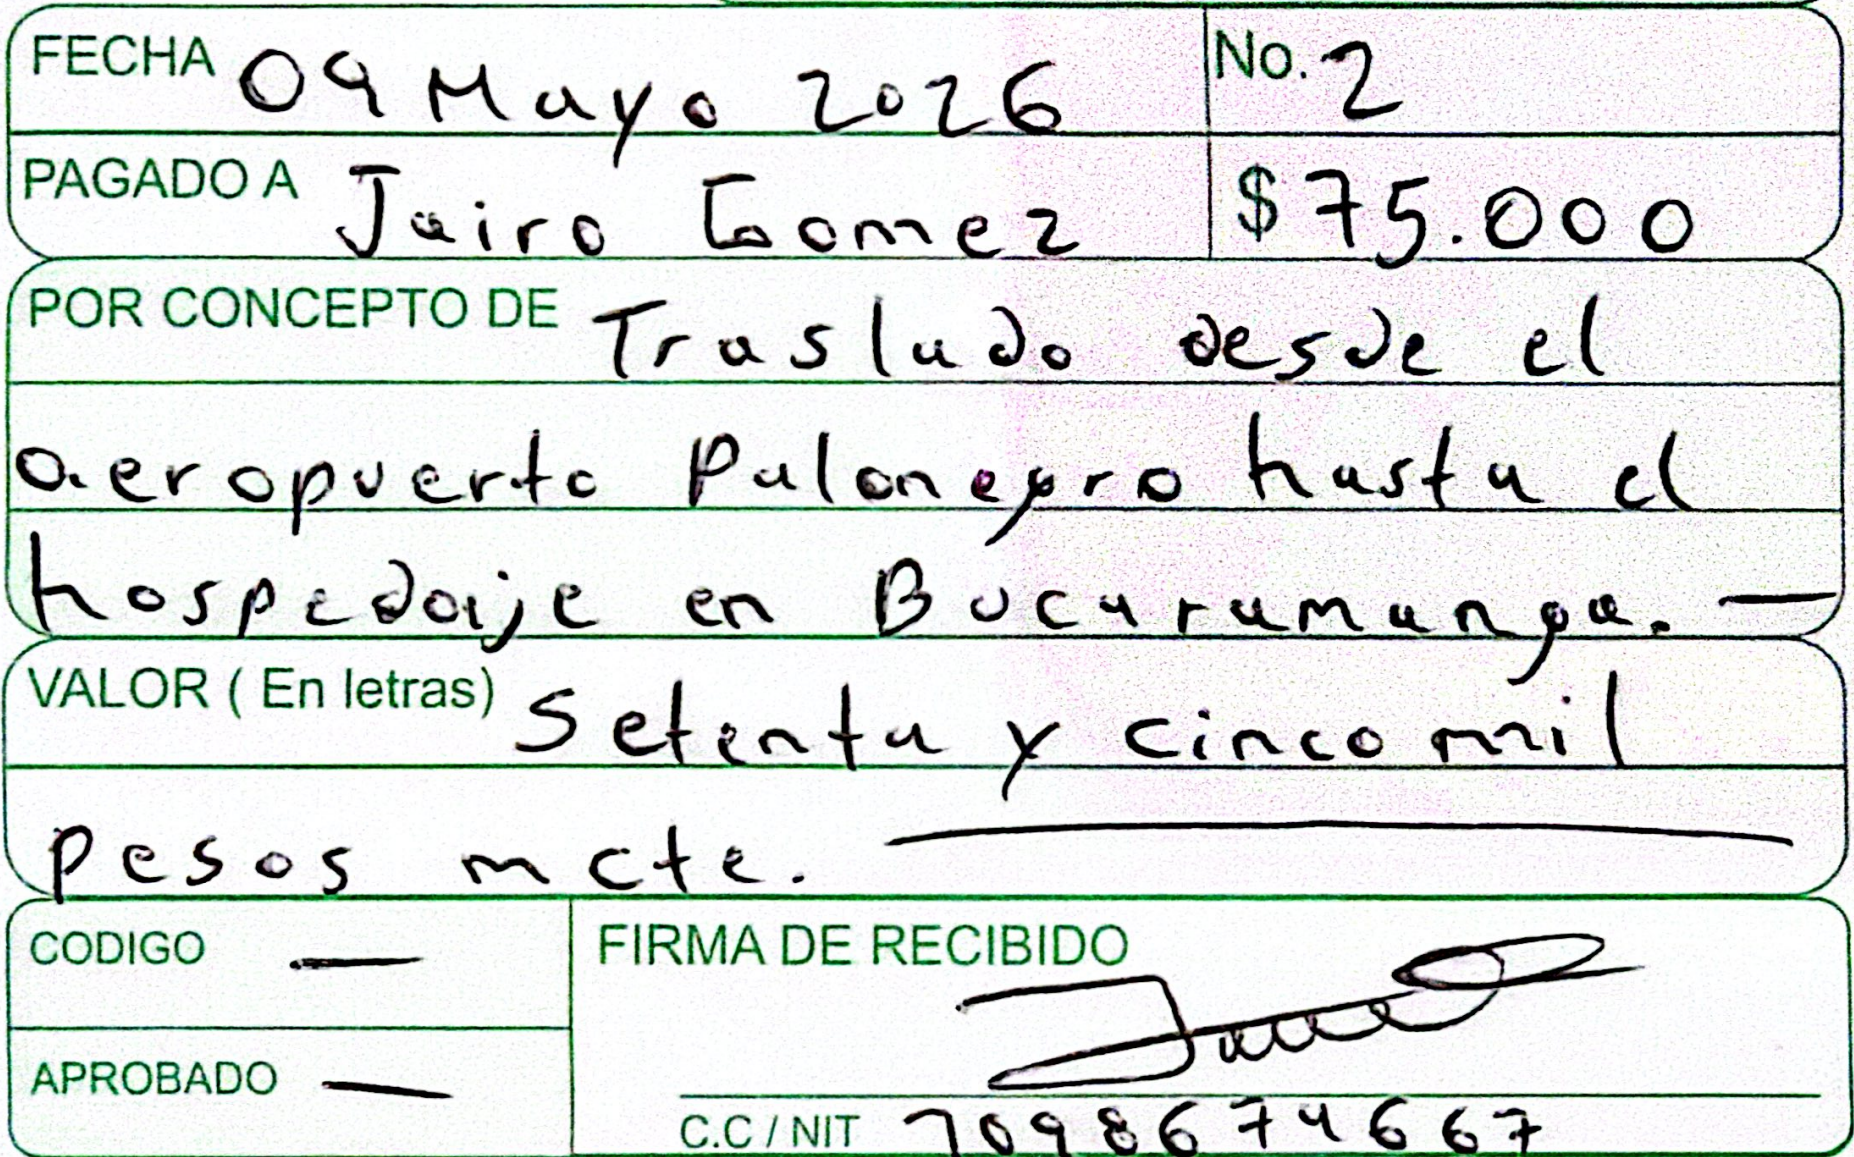 FECHA 09 Mayo 2026 No. 2
PAGADO A Jairo Gomez $ 75.000
POR CONCEPTO DE Traslado desde el
aeropuerto Palonegro hasta el
hospedaje en Bucaramanga. —
VALOR ( En letras) Setenta y cinco mil
pesos mcte. —
CODIGO — FIRMA DE RECIBIDO
APROBADO —
C.C / NIT 1098674667